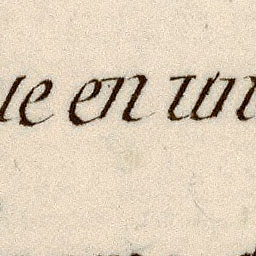 ue en un